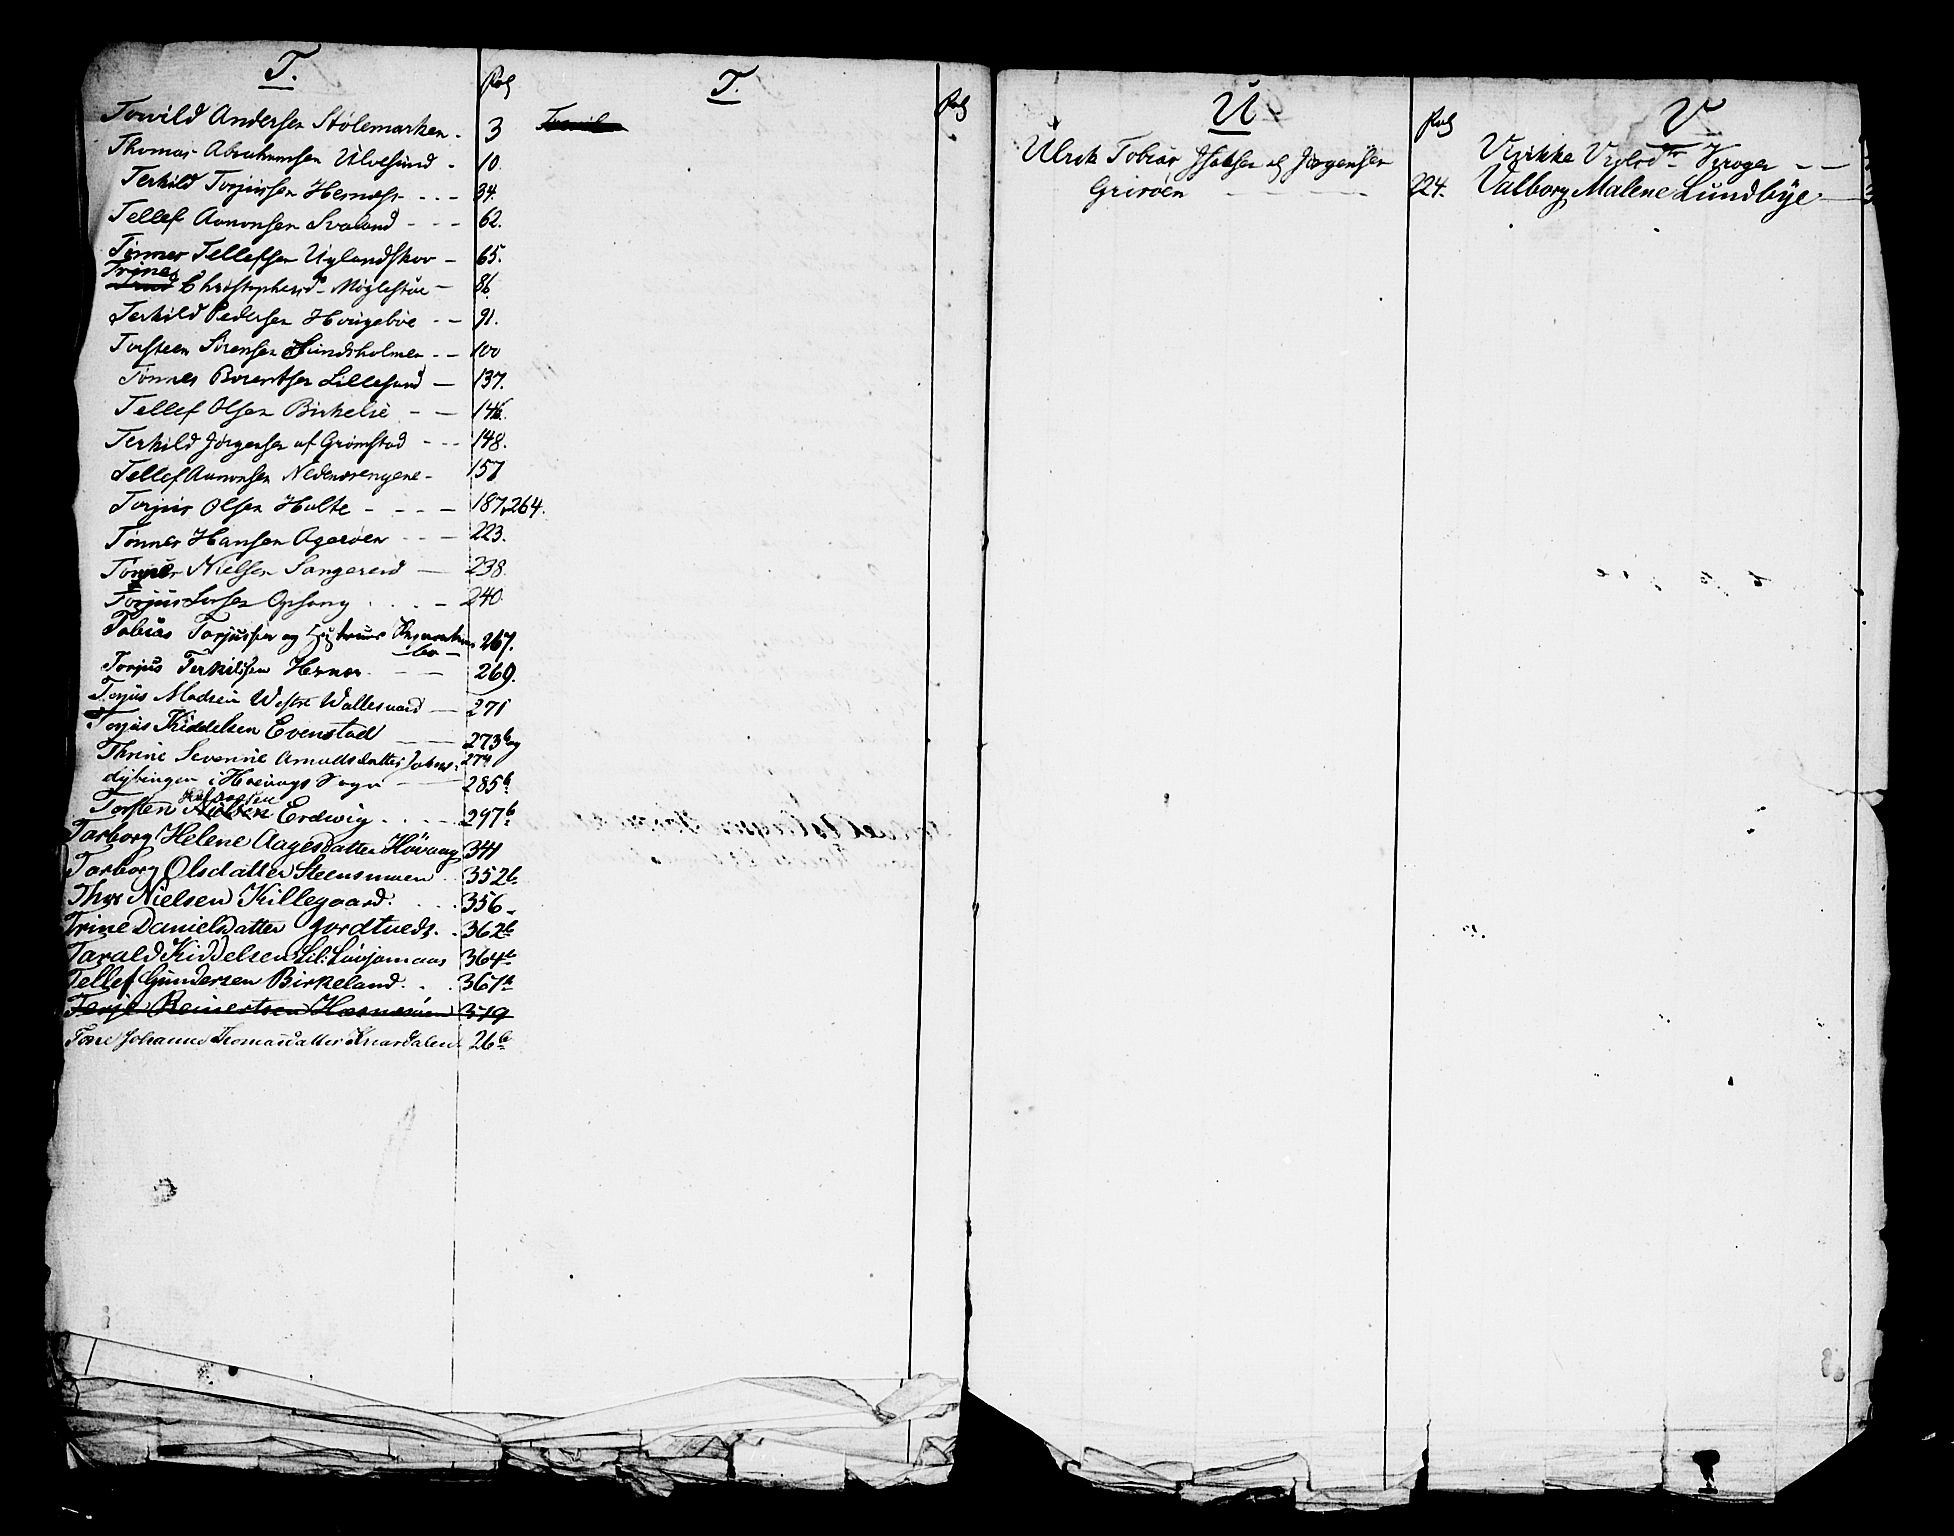 T.
Fol
Torvild Andersen Stølemarken - 3
Thomas Abrahamsen Ulvesund - 10.
Terkild Torjussen Hernæs - - - 34.
Tellef Aanonsen Svaland - - - 62.
Tønnes Tellefsen Uglandskov - 65.
Trine
Christophersd. Møglestue - 86.
Terkild Pedersen Hougeboe - - 91.
Torsteen Sørensen Sundsholmen - - 100
Tønnes Berentsen Lillesand - 137.
Tellef Olsen Birkelie - - 146.
Terkild Jørgensen af Grimstad - - - 148.
Tellef Aanonsen Nedenæsengene - 157
Torjus Olsen Holte - - - - 187, 264.
Tønnes Hansen Agerøen - - - 223.
Tønnes Nielsen Sangereid - 238.
Torjus Larsen Opsang . . . - 240.
Tobias Torjussen og Hustrues 267.
bo
Torjus Terkildsen Hernes - - 269.
Torjus Madsen Westre Vallesværd - 271
Torjus Kiddelsen Evenstad - - 273b og
Thrine Severine Amundsdatter 274
dybingen i Høivaags Sogn - 285b
Torsten Nielsen Erdvig . . . . 297b
Tarborg Helene Aagesdatter Høvaag 341
Tarborg Olsdatter Steensmoen . 352b
Thor Nielsen Killegaard. . . . 356
Trine Danielsdatter Hjordtneds. . 362b
Tarald Kiddelsen Lil: Løvjomaas 364b
Tellef Gundersen Birkeland. . . 367b
Terje Reinertsen 379
Tone Johanne Thomasdatter 26b
T.
Fol
U
Fol
Ulrik Tobias Isaksen og Jørgensen
Grisøen - - - - - 224.
V
Virikke Kroger - -
Valborg Malene Lundbye - 3